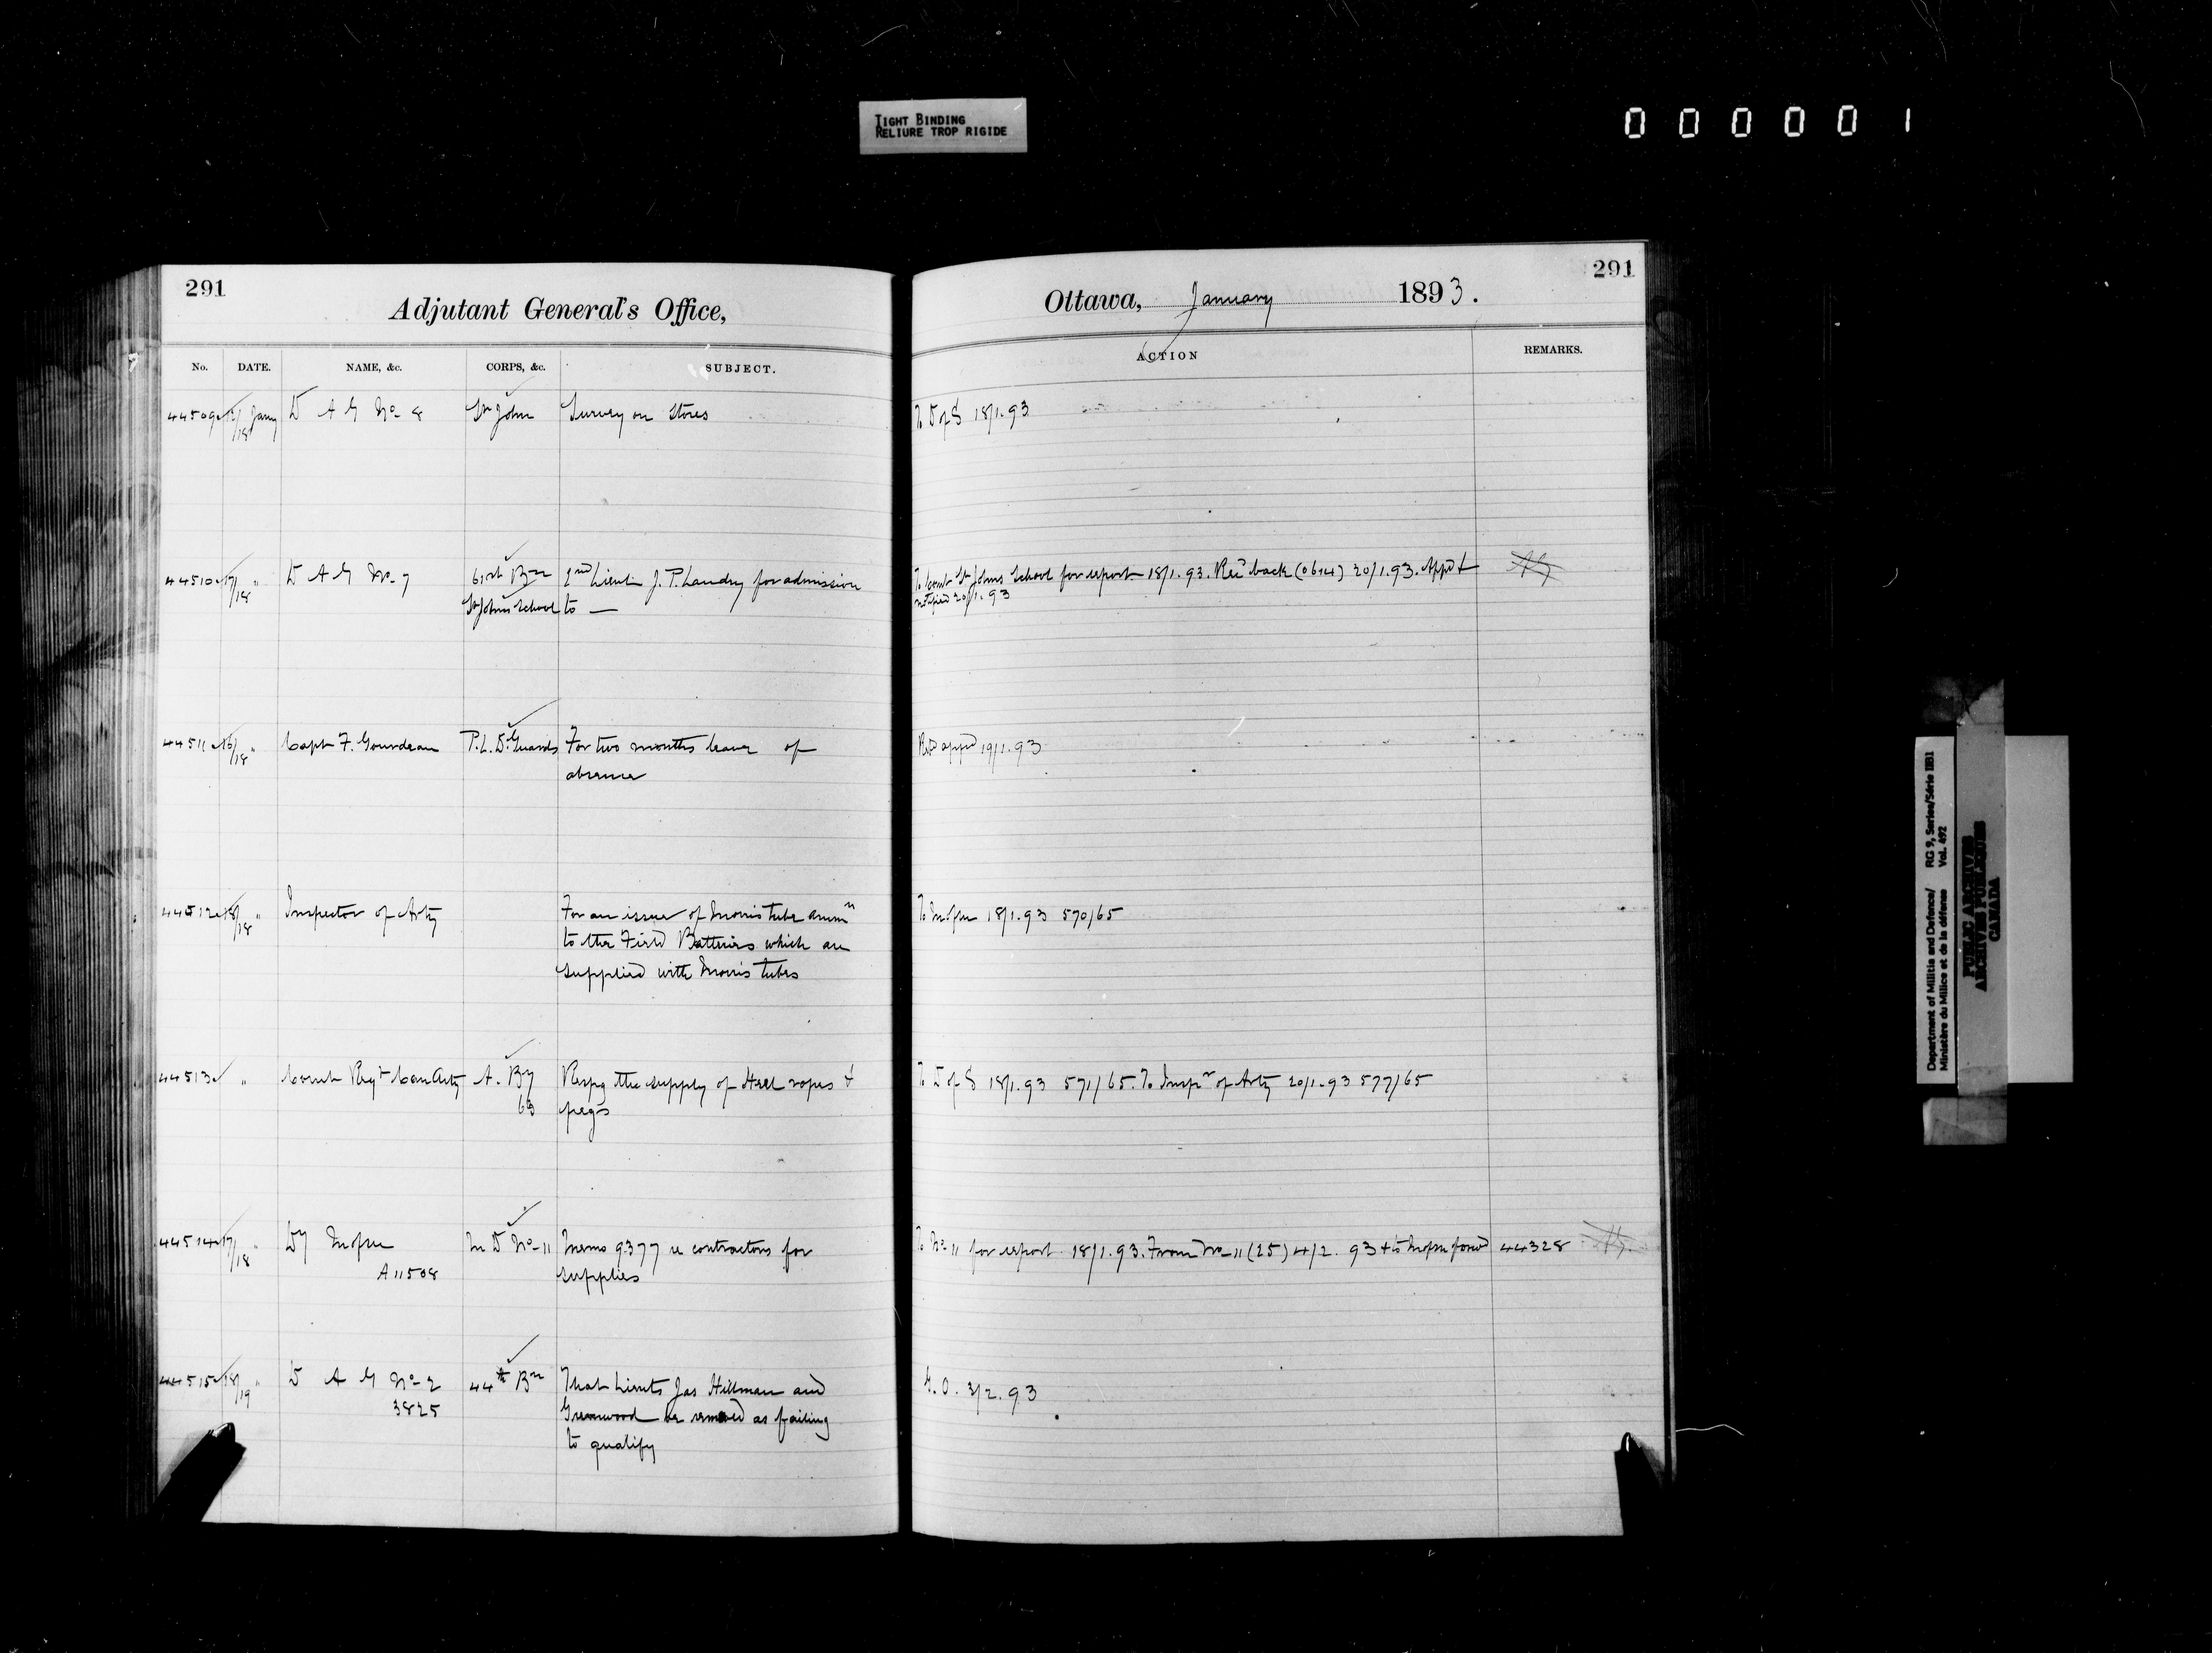 TIGHT BINDING
RELIURE TROP RIGIDE
000001
291
Adjutant General's Office,
No. DATE. NAME, &c. CORPS, &c. SUBJECT.
44509 17/18 Jany D A G No 8 St John Survey on Stores
44510 17/18 " D A G No 7 61st Bn 2nd Lieut J. P. Landry for admission
St Johns School to —
44511 16/18 " Capt F. Gourdeau P. L. D. Guards For two months leave of
absence
44512 18/18 " Inspector of Arty For an issue of Morris tube ammn
to the Field Batteries which are
supplied with Morris tubes
44513 " Comt Regt Can Arty A. By Respg the supply of Heel ropes &
63 pegs
44514 17/18 " DM M D No 11 Memo 9377 re contractors for
A11508 supplies
44515 18/19 " D A G No 2 44th Bn That Lieuts Jas Hillman and
3825 Greenwood be removed as failing
to qualify
291
Ottawa, January 1893.
ACTION REMARKS.
To D of S 18/1.93
To Comt St Johns School for report 18/1.93. Recd back (0614) 20/1.93. Appd &
notified 20/1.93
appd 19/1.93
To 18/1.93 570/65
To D of S 18/1.93 571/65. To Inspr of Arty 20/1.93 577/65
To No 11 for report 18/1.93. From No 11 (25) 4/2.93 & to 44328
G.O. 3/2.93
Department of Militia and Defence/ RG 9, Series/Série II B1
Ministère du Milice et de la défense Vol. 492
PUBLIC ARCHIVES
ARCHIVES PUBLIQUES
CANADA